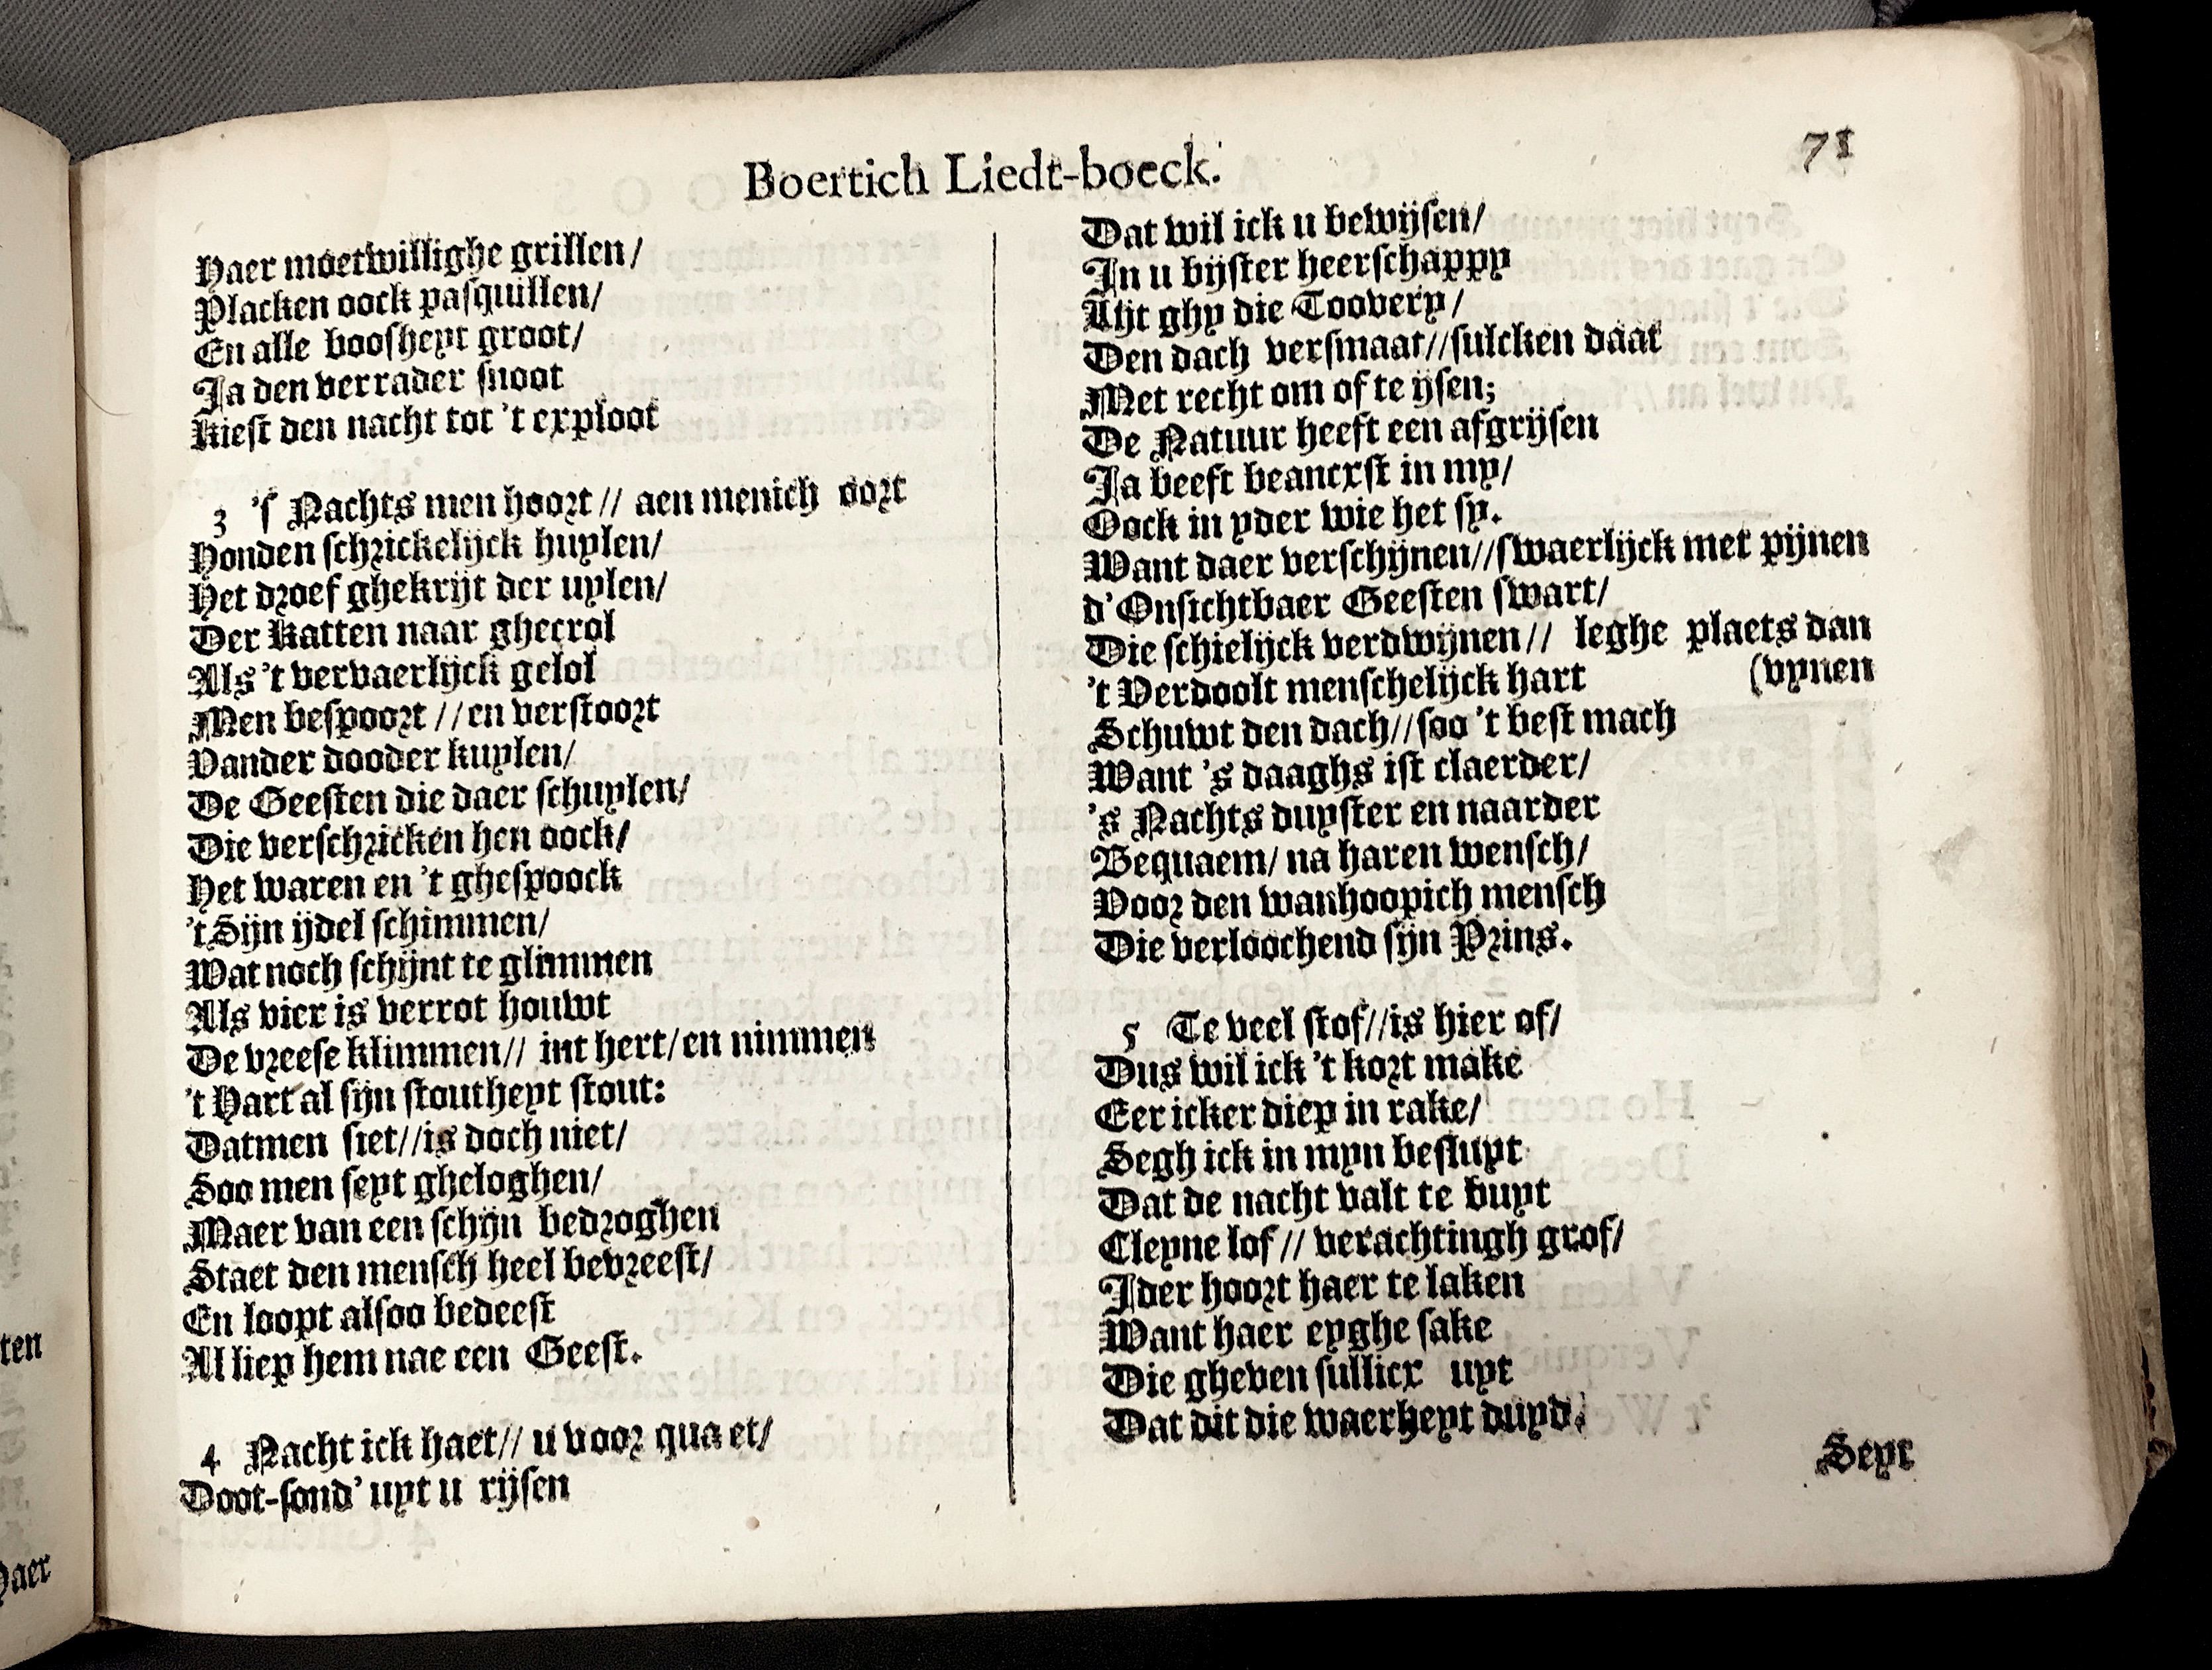 Boertich Liedt-boeck.
71
Haer moetwillighe grillen/
Placken oock pasquillen/
En alle boosheyt groot/
Ja den verrader snoot
Kiest den nacht tot 't exploot
3 's Nachts men hoort // aen menich oort
Honden schrickelijck huylen/
Het droef ghekrijt der uylen/
Der Katten naar ghecrol
Als 't vervaerlijck gelol
Men bespoort // en verstoort
Vander dooder kuylen/
De Geesten die daer schuylen/
Die verschricken hen oock/
Het waren en 't ghespoock
't Sijn ijdel schimmen/
Wat noch schijnt te glimmen
Als vier is verrot houwt
De vreese klimmen// int hert/en nimmen
't Hart al sijn stoutheyt stout:
Datmen siet//is doch niet/
Soo men seyt gheloghen/
Maer van een schijn bedroghen
Staet den mensch heel bevreest/
En loopt alsoo bedeest
Al liep hem nae een Geest.
4 Nacht ick haet// u voor quaet/
Doot-sond' uyt u rijsen
Dat wil ick u bewijsen/
In u bijster heerschappy
Lijt ghy die Toovery/
Den dach versmaat//sulcken daat
Met recht om of te ijsen;
De Natuur heeft een afgrijsen
Ja beeft beancxst in my/
Oock in yder wie het sy.
Want daer verschijnen//swaerlijck met pijnen
d'Onsichtbaer Geesten swart/
Die schielijck verdwijnen// leghe plaets dan
(vynen
't Verdoolt menschelijck hart
Schuwt den dach//soo 't best mach
Want 's daaghs ist claerder/
's Nachts duyster en naarder
Bequaem/ na haren wensch/
Voor den wanhoopich mensch
Die verloochend sijn Prins.
5 Te veel stof//is hier of/
Dus wil ick 't kort make
Eer icker diep in rake/
Segh ick in myn besluyt
Dat de nacht valt te buyt
Cleyne lof // verachtingh grof/
Ider hoort haer te laken
Want haer eyghe sake
Die gheven sullicx uyt
Dat dit die waerheyt duyd.
Seyt
ten
Haer